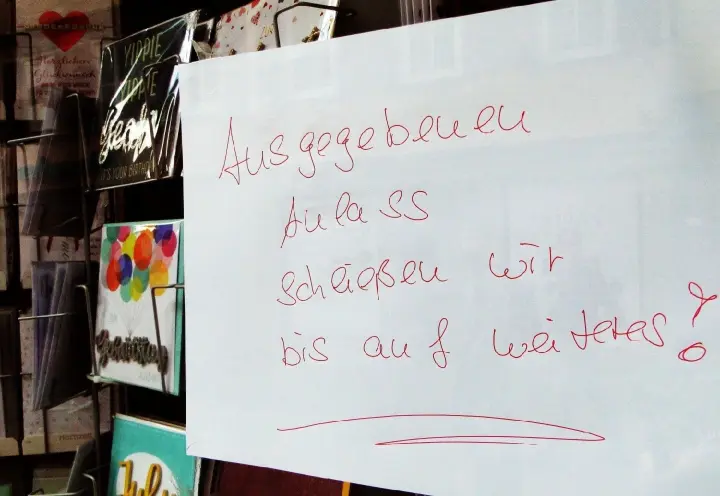 Herzlichen
Glückwunsch
YIPPIE
YIPPIE
IT'S YOUR BIRTHDAY
Ausgegebenen
Anlass
schließen wir
bis auf weiteres!